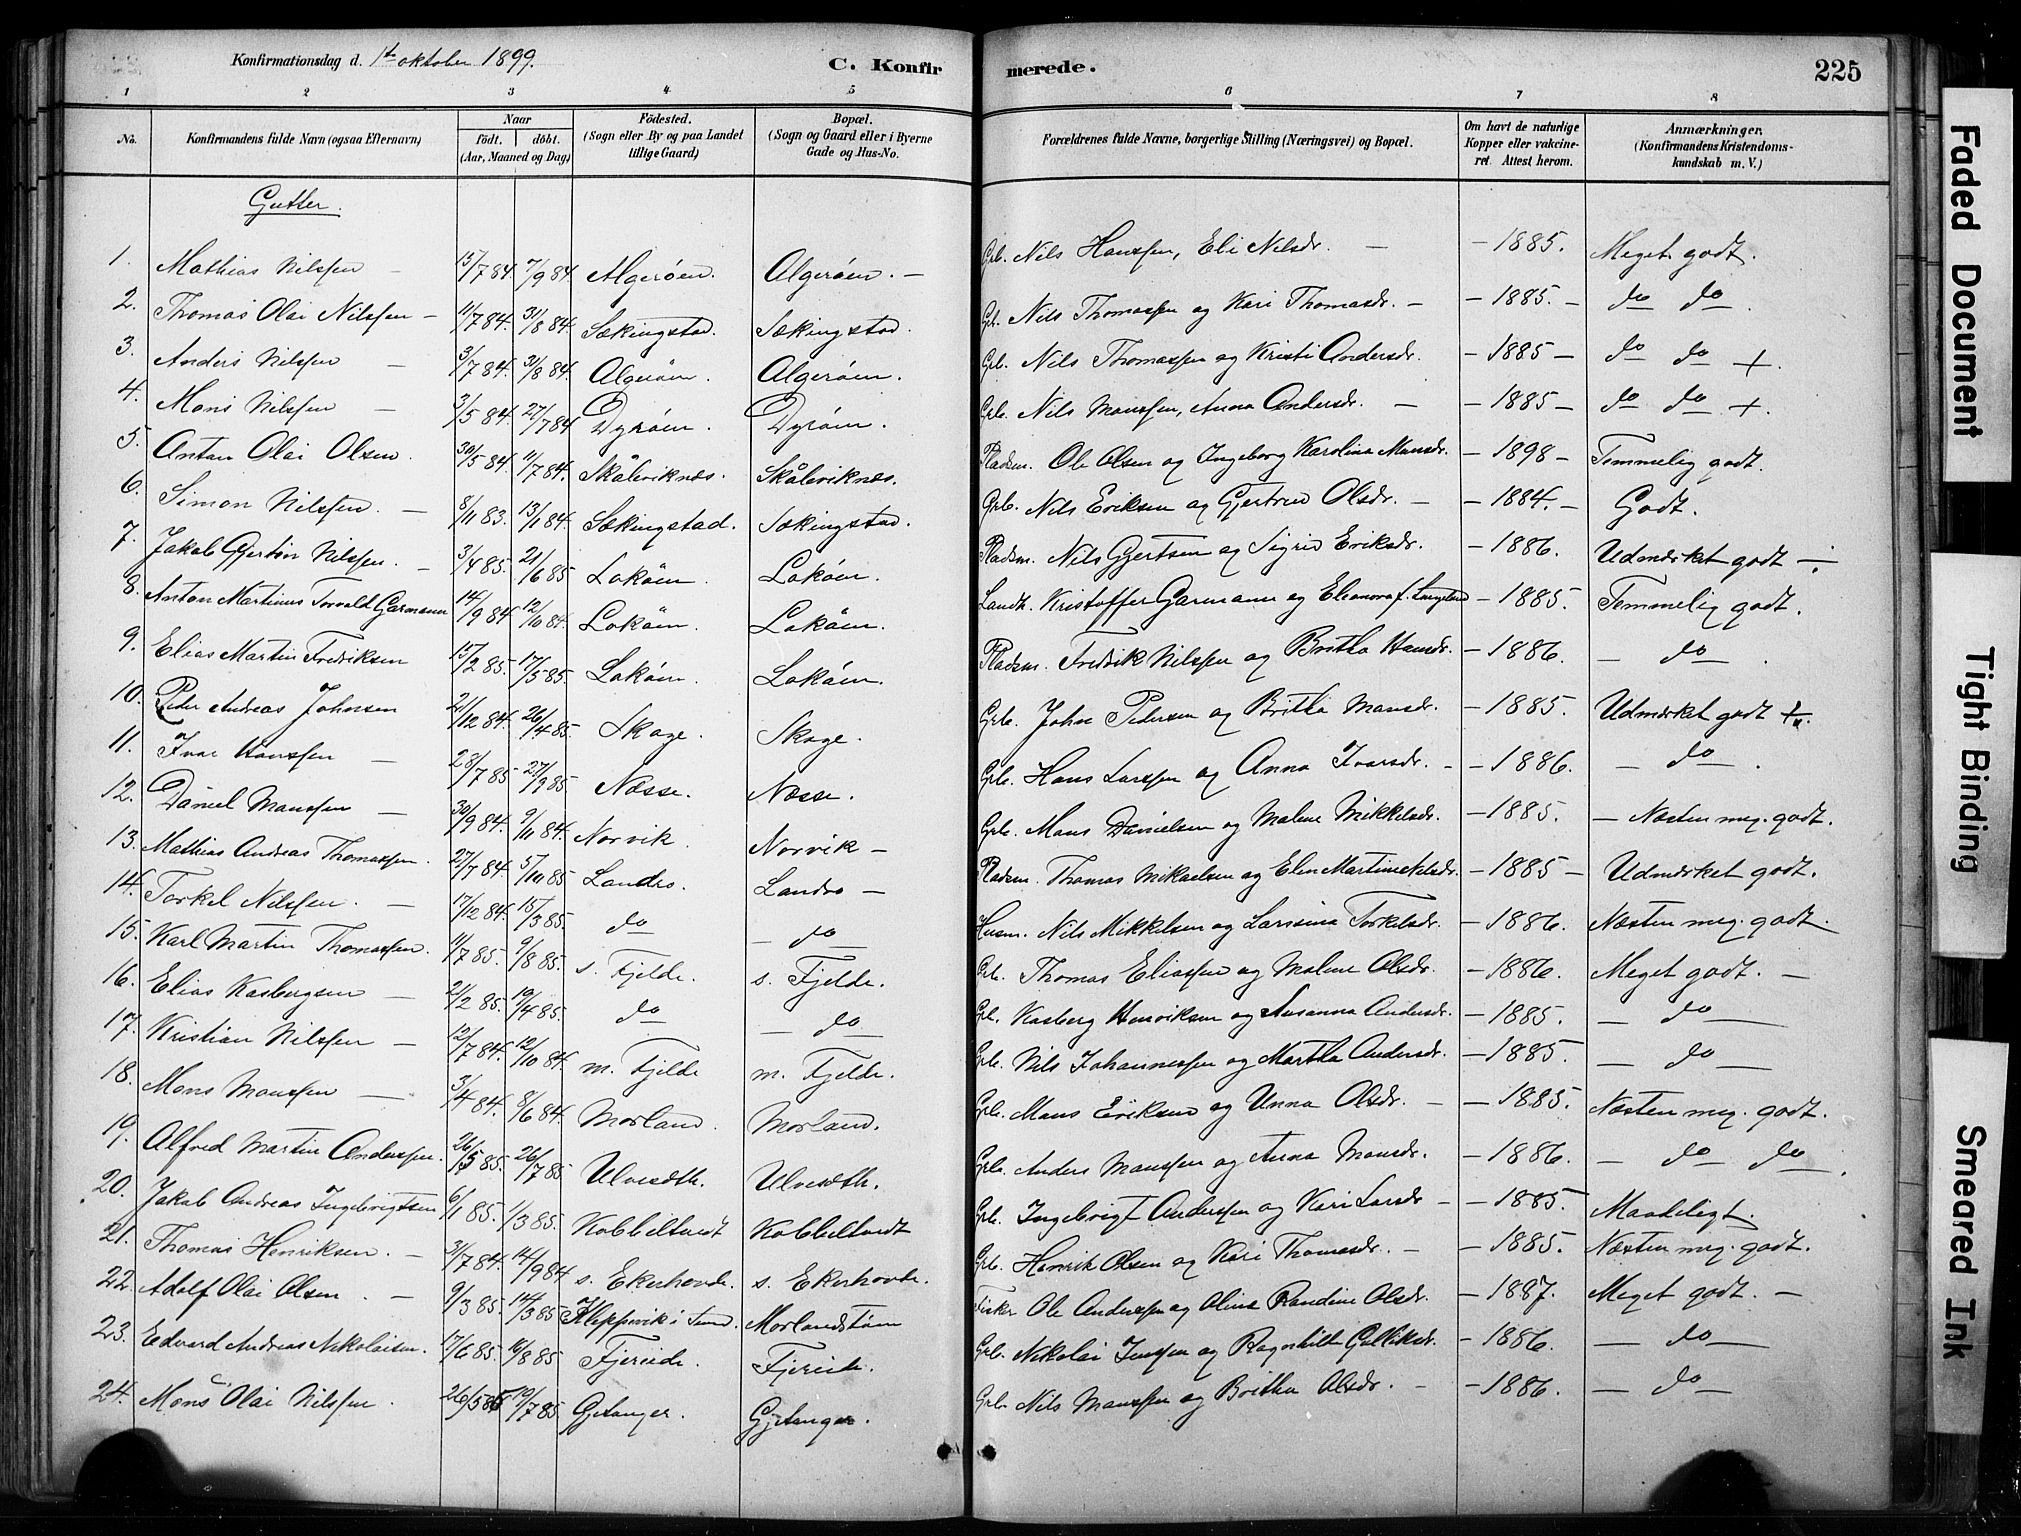 Konfirmationsdag d. 1t oktober 1899. C. Konfirmerede. 225
1 2 3 4 5 6 7 8
No. Konfirmandens fulde Navn (ogsaa Efternavn) Naar født. døbt. (Aar, Maaned og Dag) Fødested. (Sogn eller By og paa Landet tillige Gaard) Bopæl. (Sogn og Gaard eller i Byerne Gade og Hus-No. Forældrenes fulde Navne, borgerlige Stilling (Næringsvei) og Bopæl. Om havt de naturlige Kopper eller vakcineret. Attest herom. Anmærkninger. (Konfirmandens Kristendomskundskab m. V.)
Gutter.
1. Mathias Nilssen — 15/7 84. 7/9 84 Algerøen. Algerøen. — Grb. Nils Hanssen, Eli Nilsdr. — - 1885. Meget godt.
2. Thomas Olai Nilssen — 11/7 84. 31/8 84. Sækingstad. Sækingstad. Gb. Nils Thomassen og Kari Thomasdr. — - 1885. - do do
3. Anders Nilssen — 3/7 84. 31/8 84. Algerøen. Algerøen. Grb. Nils Thomassen og Kristi Andersdr. - 1885 - do do +.
4. Mons Nilssen — 3/5 84. 27/7 84 Dyrøen. Dyrøen. Grb. Nils Monssen, Anna Andersdr. — - 1885 - do do +.
5. Anton Olai Olsen. 30/5 84. 11/7 84. Skåleviknæs. Skåleviknæs. Pladsm. Ole Olsen og Ingeborg Karolina Monsdr. - 1898 - Temmelig godt.
6. Simon Nilssen. — 8/11 83. 13/1 84. Sækingstad. Sækingstad. Grb. Nils Eriksen og Gjertrud Olsdr. — - 1884. - Godt.
7. Jakob Gjertin Nilssen. — 3/4 85. 21/6 85 Lokøen. Lokøen. Pladsm. Nils Gjertsen og Sigrid Eriksdr. - 1886. Udmærket godt
8. Anton Martinus Torvald Garmann 14/9 84 12/10 84. Lokøen. Lokøen. Landh. Kristoffer Garmann og Eleonora f. Langeland - 1885. Temmelig godt.
9. Elias Martin Fredriksen 15/2 85. 17/5 85. Lokøen. Lokøen. Pladsm. Fredrik Nilssen og Britha Hansdr. - 1886. — do — .
10. Peder Andreas Johnsen 21/12 84. 26/4 85. Skoge. Skoge. Grb. John Pedersen og Britha Monsdr. - 1885. Udmærket godt +.
11. Ivar Hanssen — 28/7 85 27/9 85. Næsse. Næsse. Grb. Hans Larssen og Anna Ivarsdr. - - 1886. — do — .
12. Daniel Monssen — 30/9 84. 9/11 84. Norvik. Norvik — Grb. Mons Danielsen og Malene Mikkelsdr. - 1885. — Næsten meg. godt.
13. Mathias Andreas Thomassen. 27/7 84. 5/10 85 Landro. Landro — Pladsm. Thomas Mikaelsen og Elen Martine Nilsdr. - 1885 - Udmærket godt.
14. Torkel Nilssen. — 17/12 84. 15/3 85. do — do — Husm. Nils Mikkelsen og Larsina Torkelsdr. - 1886. Næsten meg. godt.
15. Karl Martin Thomassen. 11/7 85. 9/8 85. s. Fjelde. s. Fjelde. Grb. Thomas Eliassen og Malene Olsdr. - 1886. Meget godt. —
16. Elias Kasbergsen — 21/2 85. 19/4 85. do — do — Grb. Kasberg Henriksen og Susanna Andersdr. - 1885. — do —
17. Kristian Nilssen — 12/7 84. 12/10 84. m. Fjelde m. Fjelde. Grb. Nils Johannessen og Martha Andersdr. - 1885. — do —
18. Mons Monssen — 3/4 84. 8/6 84. Morland. Morland. Grb. Mons Eriksen og Unna Olsdr. — - 1885. Næsten meg. godt.
19. Alfred Martin Anderssen. 26/5 85. 26/7 85. Ulvesdth. Ulvesdth. Grb. Anders Monssen og Anna Monsdr. - 1886. — do do .
20. Jakob Andreas Ingebrigtsen 6/1 85. 1/3 85. Kobbeltvedt Kobbeltvedt Grb. Ingebrigt Anderssen og Kari Larsdr — - 1885. Maadeligt.
21. Thomas Henriksen. — 31/7 84. 14/9 84 s. Ekerhovde. s. Ekerhovde. Grb. Henrik Olsen og Kari Thomasdr. — - 1885. Næsten meg. godt.
22. Adolf Olai Olsen. — 9/3 85. 14/3 85 Kleppevik i Sund. Morlandstøen Fisker Ole Anderssen og Oline Randine Olsdr. - 1887. Meget godt. —
23. Edvard Andreas Nikolaisen. 17/6 85. 16/8 85 Fjereide. Fjereide. Grb. Nikolai Jenssen og Ragnhilde Gulliksdr. - 1886. — do —
24. Mons Olai Nilssen. 26/5 85 19/7 85 Gjetanger. Gjetanger. Grb. Nils Monssen og Britha Olsdr. — - 1886. — do —
Faded Document
Tight Binding
Smeared Ink